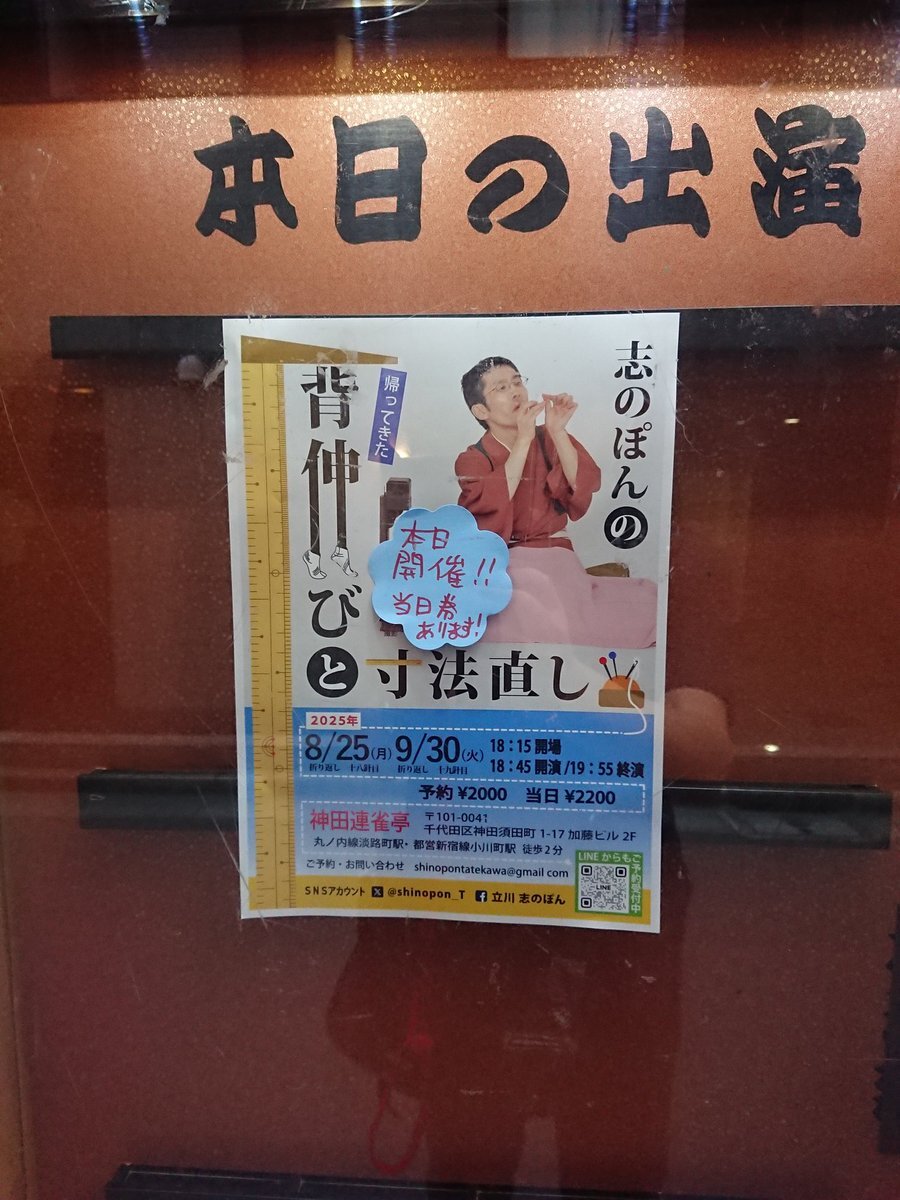 本日の出演
志のぽんの
帰ってきた
背伸びと
寸法直し
本日
開催!!
当日券
あります!
2025年
8/25(月) 9/30(火)
折り返し 十八針目 折り返し 十九針目
18:15 開場
18:45 開演/19:55 終演
予約 ¥2000 当日 ¥2200
神田連雀亭
〒101-0041
千代田区神田須田町 1-17 加藤ビル 2F
丸ノ内線淡路町駅・都営新宿線小川町駅 徒歩2分
ご予約・お問い合わせ shinopontatekawa@gmail.com
LINE からもご予約受付中
LINE
SNSアカウント X @shinopon_T f 立川 志のぽん